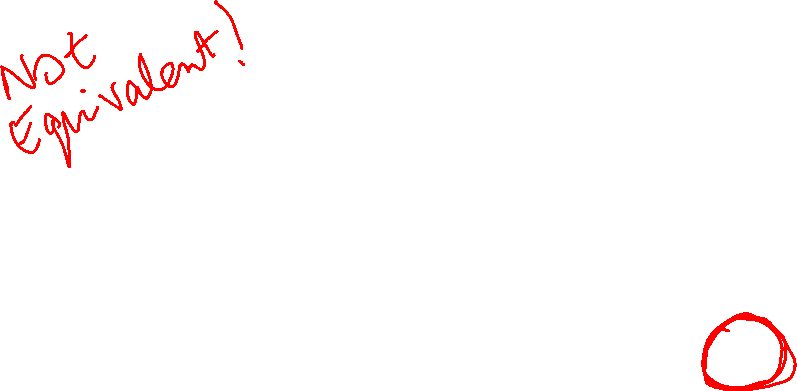 Not
Equivalent!